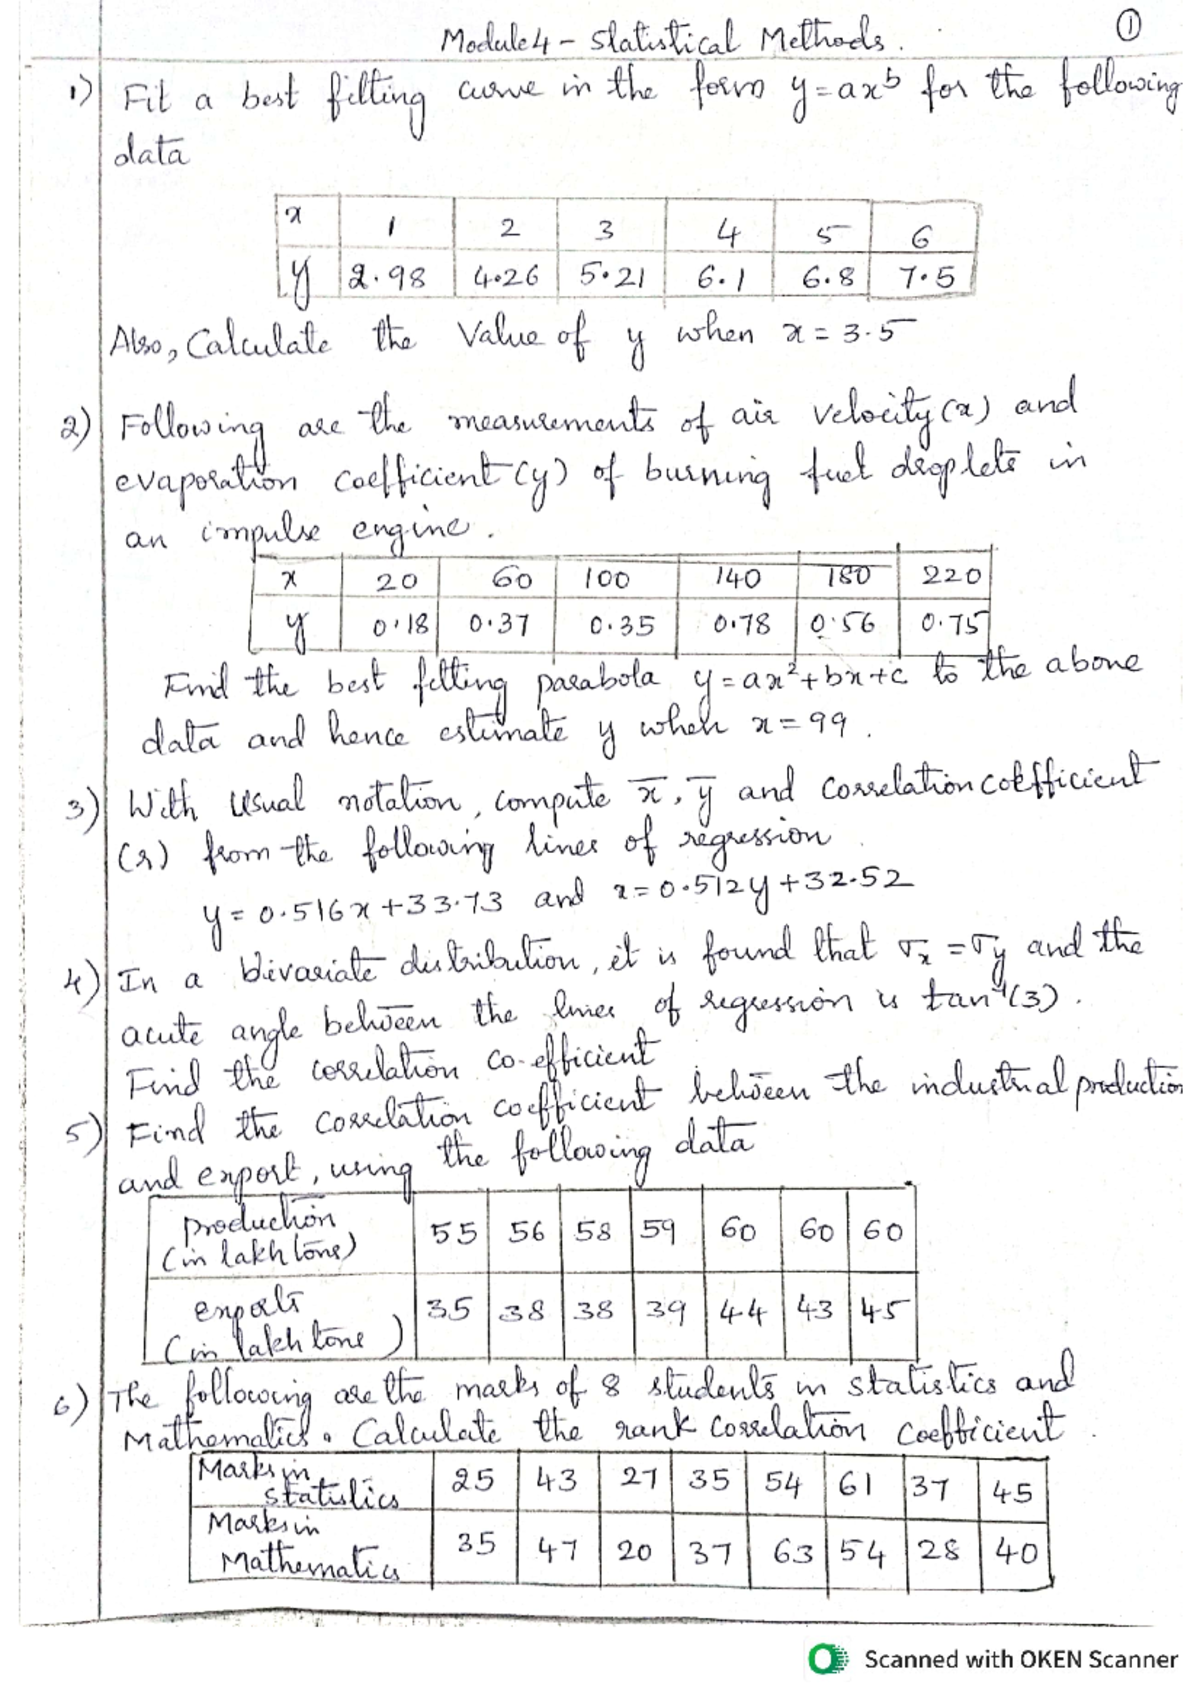 Module 4 - Statistical Methods. 1
1) Fit a best fitting curve in the form y = ax^b for the following
data
x 1 2 3 4 5 6
y 2.98 4.26 5.21 6.1 6.8 7.5
Also, Calculate the Value of y when x = 3.5
2) Following are the measurements of air velocity (x) and
evaporation coefficient (y) of burning fuel droplets in
an impulse engine.
x 20 60 100 140 180 220
y 0.18 0.37 0.35 0.78 0.56 0.75
Find the best fitting parabola y = ax²+bx+c to the above
data and hence estimate y when x = 99.
3) With usual notation, compute x̄, ȳ and correlation coefficient
(r) from the following lines of regression
y = 0.516x + 33.73 and x = 0.512y + 32.52
4) In a bivariate distribution, it is found that σx = σy and the
acute angle between the lines of regression is tan⁻¹(3).
Find the correlation co-efficient
5) Find the correlation coefficient between the industrial production
and export, using the following data
Production
(in lakh tons) 55 56 58 59 60 60 60
exports
(in lakh tone) 35 38 38 39 44 43 45
6) The following are the marks of 8 students in statistics and
Mathematics. Calculate the rank correlation coefficient.
Marks in
statistics 25 43 27 35 54 61 37 45
Marks in
Mathematics 35 47 20 37 63 54 28 40
Scanned with OKEN Scanner